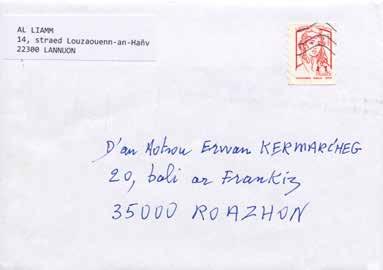 AL LIAMM
14, straed Louzaouenn-an-Hañv
22300 LANNUON
FRANCE
D'an Aotrou Erwan KERMARC'HEG
20, bali ar Frankiz
35000 ROAZHON